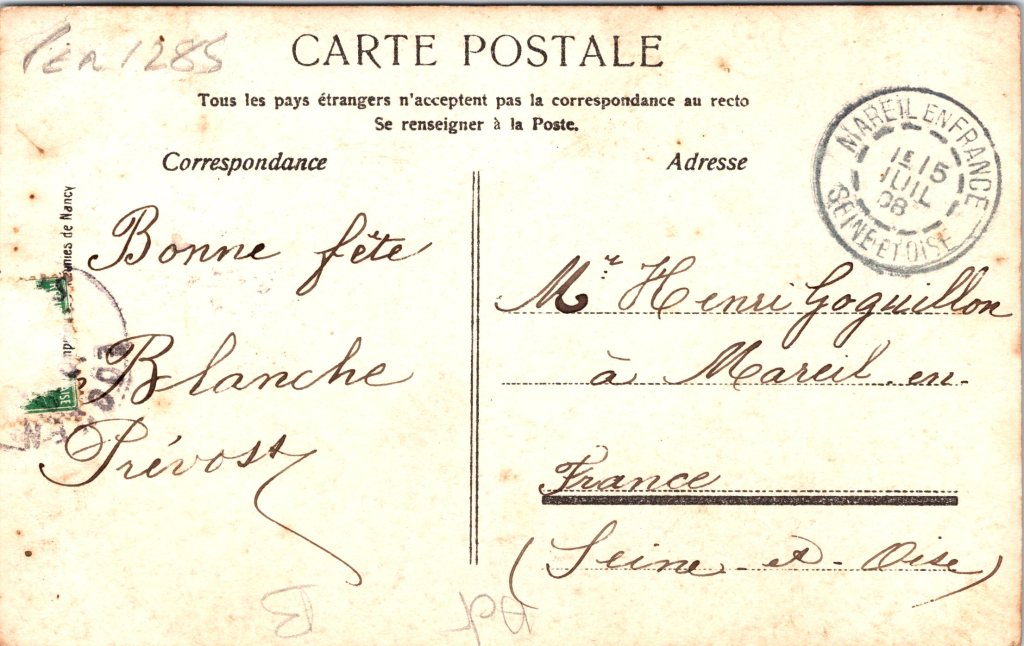 PER 1285
CARTE POSTALE
Tous les pays étrangers n'acceptent pas la correspondance au recto
Se renseigner à la Poste.
Correspondance
Adresse
MAREIL EN FRANCE
1E 15
JUIL
08
SEINE-ET-OISE
de Nancy
Bonne fête
Blanche
Prévost
Mr Henri Goguillon
à Mareil-en-
France
(Seine-et-Oise)
B